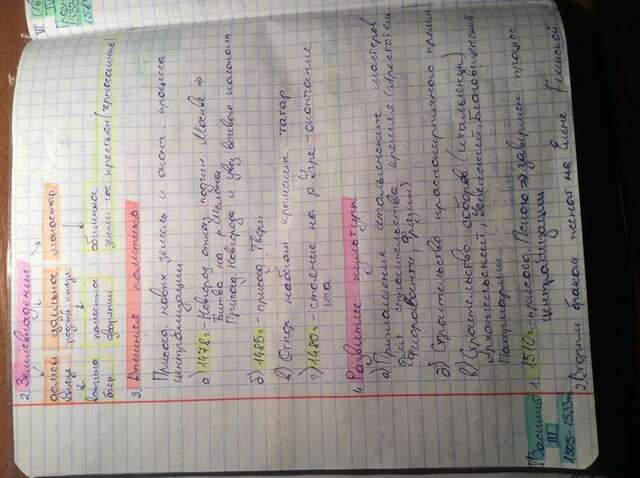 2. Землевладения
домен удельное монастыр.
князя родств. князя
вотчина поместное общинное
бояр. дворянин земли гос. крестьян (черносошные)
3. Внешняя политика
Присоед. новых земель и оконч. процесса
централизации
а) 1478г. - Новгород отказ подчин Москве ⇒
Битва на р. Шелони
Присоед Новгорода и увоз вечевого колокола
б) 1485г - присоед. Твери
в) Отпор набегам крымских татар
г) 1480г. - стояние на р. Угре - окончание
ига
4. Развитие культуры
а) Приглашение итальянских мастеров
для строительства кремля (Аристотель
Фиораванти, Фрязин)
б) Строительство краснокирпичного кремля
в) Строительство соборов (итальянцы)
Архангельский, Успенский, Благовещенский,
Василий
III
1505-1533г
1. 1510г. - присоед. Пскова ⇒ завершен процесс
централизации
2. Вторым браком женат на Елене Глинской
VI